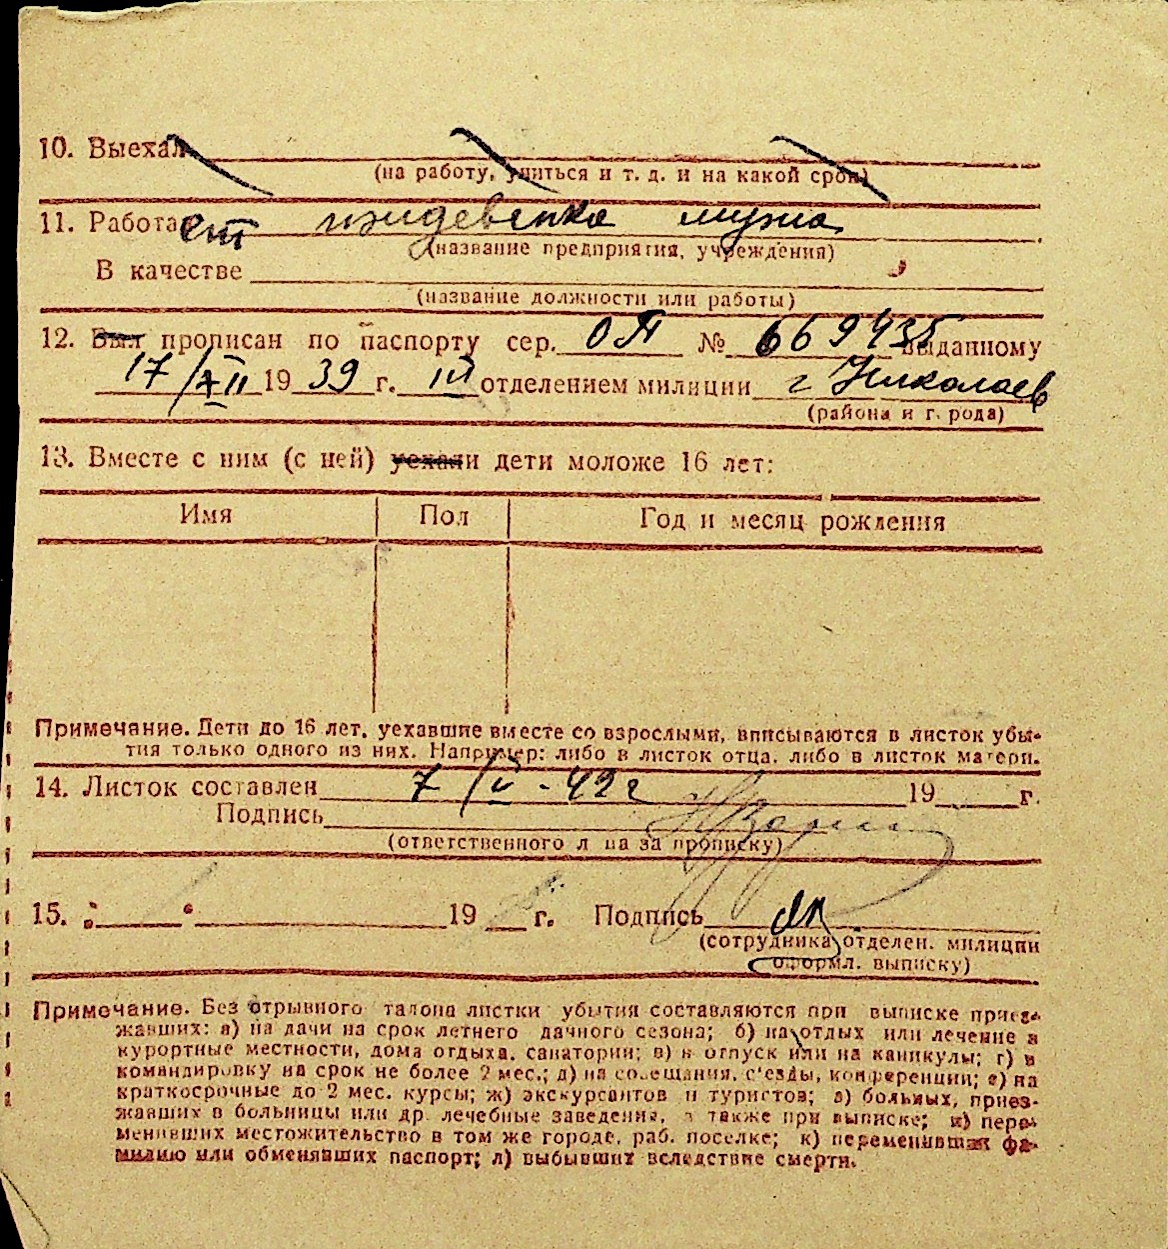 10. Выехал
(на работу, учиться и т. д. и на какой срок)
11. Работает иждевенка мужа
(название предприятия, учреждения)
В качестве
(название должности или работы)
12. Был прописан по паспорту сер. ОЯ № 669435 выданному
17/XII 1939 г. III отделением милиции г Николаев
(района и г. рода)
13. Вместе с ним (с ней) уехали дети моложе 16 лет:
Имя Пол Год и месяц рождения
Примечание. Дети до 16 лет, уехавшие вместе со взрослыми, вписываются в листок убы-
тия только одного из них. Например: либо в листок отца, либо в листок матери.
14. Листок составлен 7/V - 42 г 19 г.
Подпись
(ответственного л ца за прописку)
15. 19 г. Подпись
(сотрудника отделен. милиции
оформл. выписку)
Примечание. Без отрывного талона листки убытия составляются при выписке приез-
жавших: а) на дачи на срок летнего дачного сезона; б) на отдых или лечение в
курортные местности, дома отдыха, санатории; в) в отпуск или на каникулы; г) в
командировку на срок не более 2 мес.; д) на совещания, с'езды, конференции; е) на
краткосрочные до 2 мес. курсы; ж) экскурсантов и туристов; з) больных, приез-
жавших в больницы или др. лечебные заведения, а также при выписке; и) пере-
менивших местожительство в том же городе, раб. поселке; к) переменивших фа-
милию или обменявших паспорт; л) выбывших вследствие смерти.